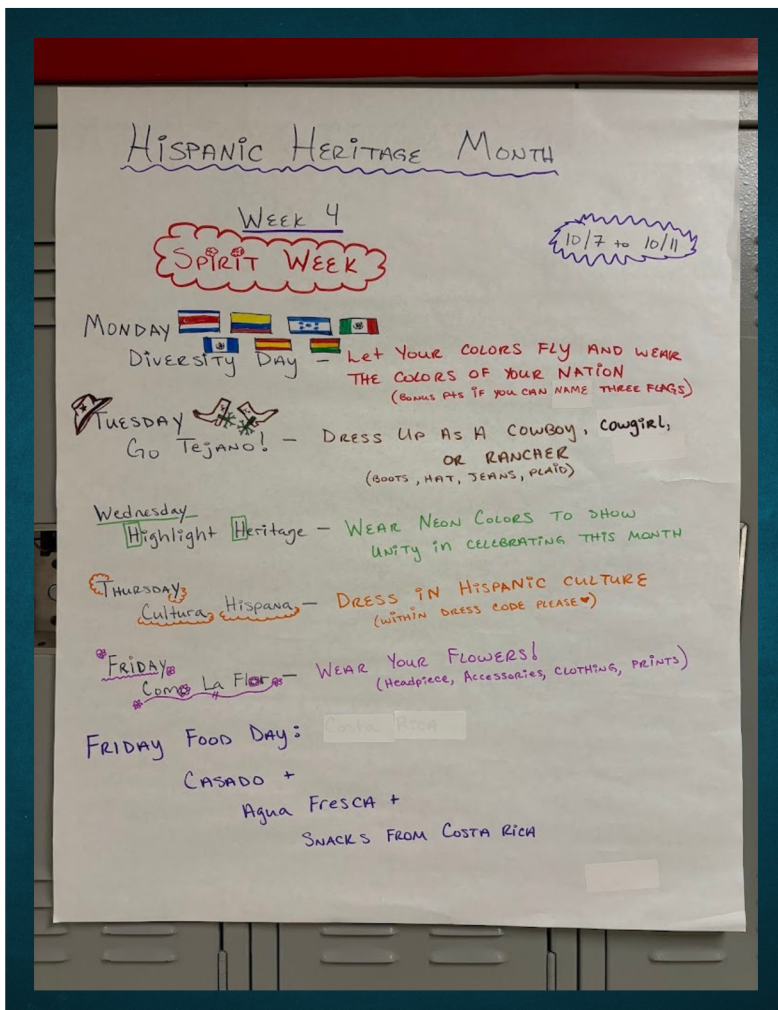 Hispanic Heritage Month
Week 4
Spirit Week
10/7 to 10/11
Monday
Diversity Day - Let Your Colors Fly and Wear
the Colors of Your Nation
(Bonus pts if you can name three flags)
Tuesday
Go Tejano! - Dress Up As A Cowboy, Cowgirl,
or Rancher
(Boots, Hat, Jeans, Plaid)
Wednesday
Highlight Heritage - Wear Neon Colors to Show
Unity in Celebrating This Month
Thursday
Cultura Hispana - Dress in Hispanic Culture
(Within Dress Code Please ♥)
Friday
Como La Flor - Wear Your Flowers!
(Headpiece, Accessories, Clothing, Prints)
Friday Food Day: Costa Rica
Casado +
Agua Fresca +
Snacks From Costa Rica